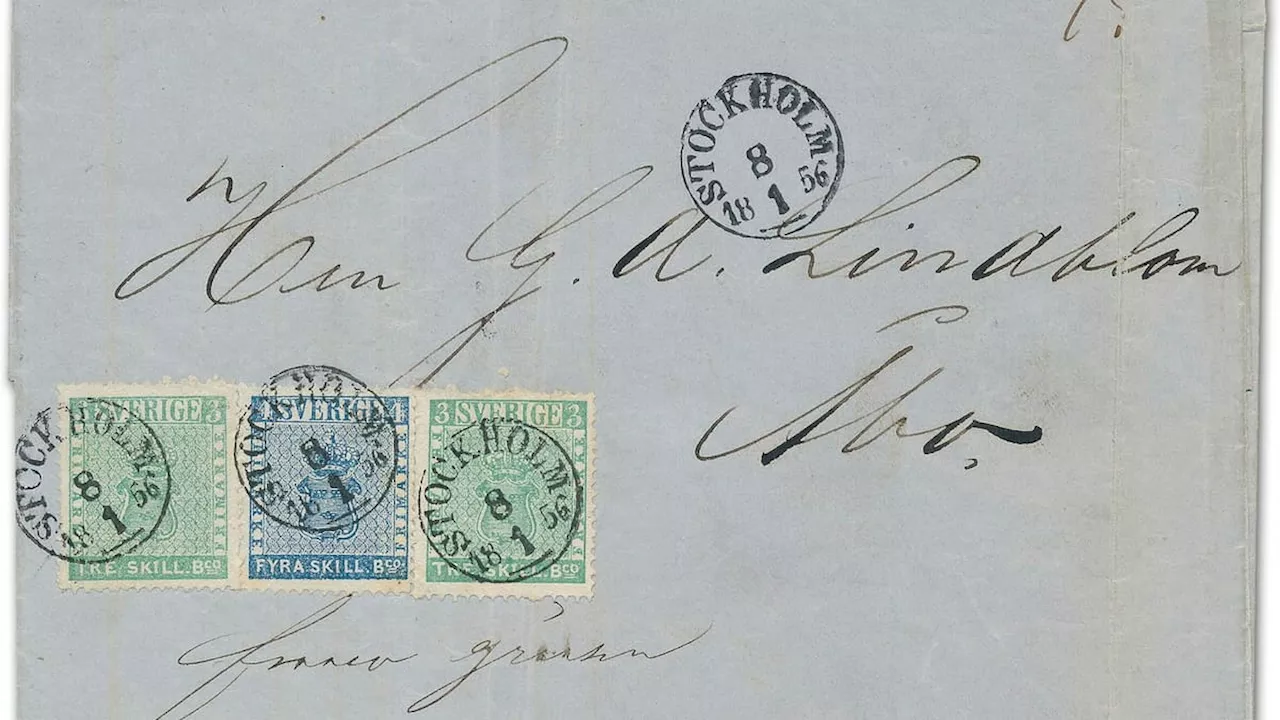 STOCKHOLM
8
18 1 56
Herr G. A. Lindblom
Åbo.
3 SVERIGE 3
FRIMÄRKE
TRE SKILL. Bco
STOCKHOLM
8
18 1 56
4 SVERIGE 4
FRIMÄRKE
FYRA SKILL. Bco
STOCKHOLM
8
18 1 56
3 SVERIGE 3
FRIMÄRKE
TRE SKILL. Bco
STOCKHOLM
8
18 1 56
franco gränsen